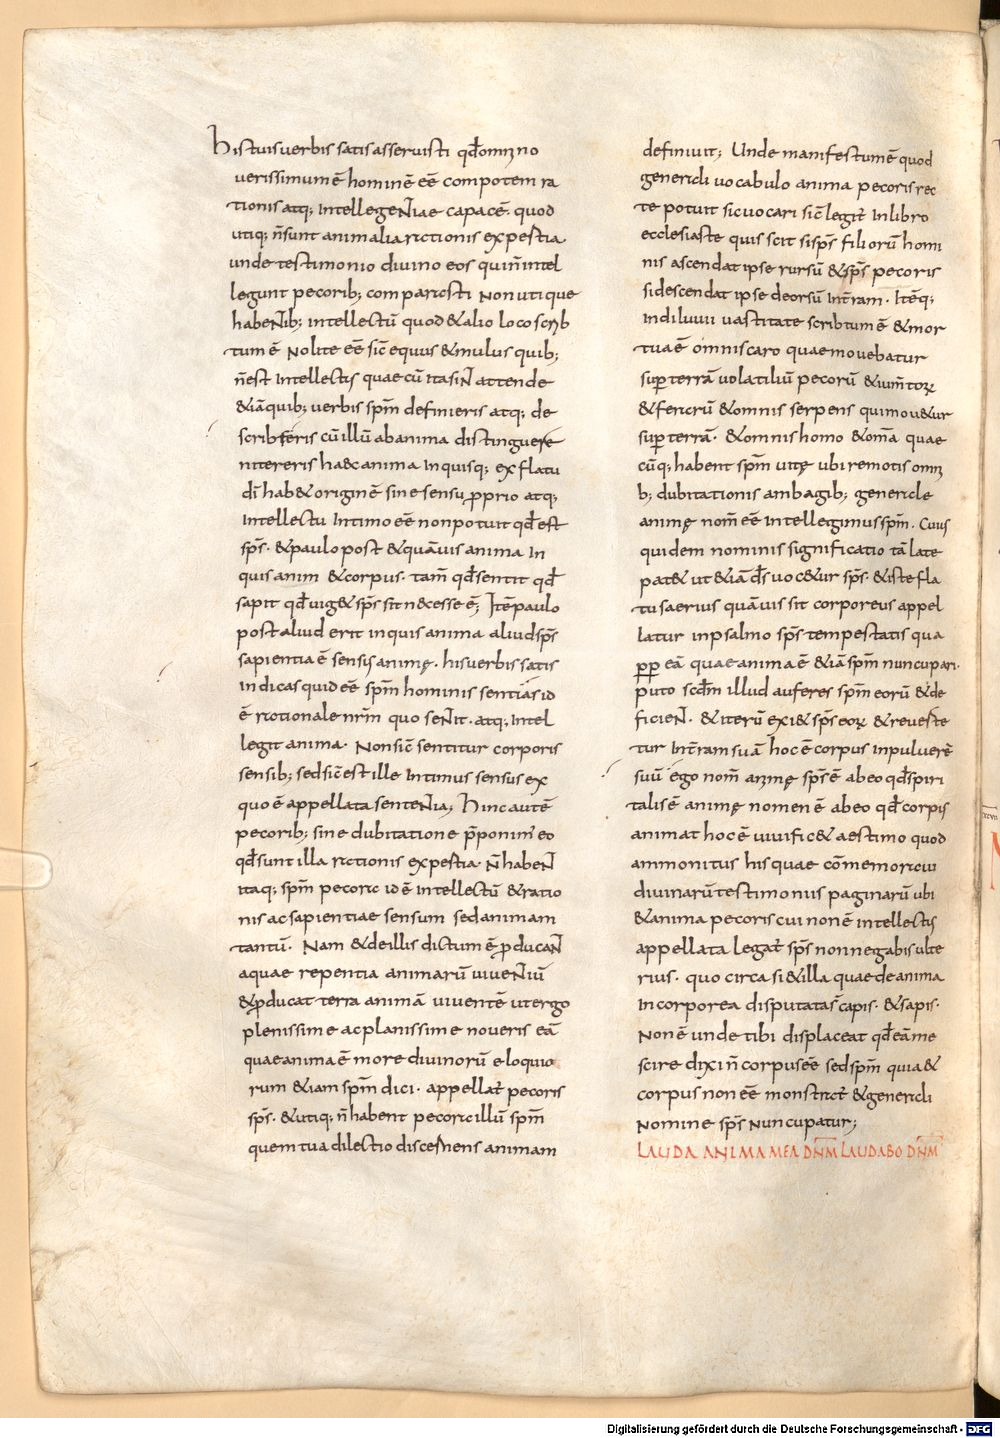 Histuisverbis satis asservisti qđ omnino
verissimum ē hominē eē compotem ra
tionis atq; intellegentiae capacē. quod
utiq; n̄ sunt animalia rationis expertia
unde testimonio divino eos qui n̄ intel
legunt pecorib; comparasti non utique
habentib; intellectū quod & alio loco scrib
tum ē Nolite eē sic̄ equus & mulus quib;
n̄ est intellectus quae cū ita sint attende
& iā quib; verbis sp̄m definieris atq; de
scribseris cū illū ab anima distinguere
nitereris haec anima inquis q; ex flatu
dī hab& originē sine sensu proprio atq;
intellectu intimo eē non potuit qđ est
sp̄s. & paulo post & quāvis anima in
quis anim & corpus. tam̄ qđ sentit qđ
sapit qđ vig& sp̄s sit necesse ē; Itē paulo
post aliud erit inquis anima aliud sp̄s
sapientia ē sensus animę. his verbis satis
indicas quid eē sp̄m hominis sentias id
ē rationale nr̄m quo sentit. atq; intel
legit anima. Non sic̄ sentitur corporis
sensib; sed sic̄ est ille intimus sensus ex
quo ē appellata sententia; Hinc autē
pecorib; sine dubitatione p̄ponim̄ eo
qđ sunt illa rationis expertia. n̄ habent
itaq; sp̄m pecora id ē intellectū & ratio
nis ac sapientiae sensum sed animam
tantū. Nam & de illis dictum ē producant
aquae repentia animarū viventiū
& producat terra animā viventē ut ergo
plenissime ac planissime noveris eā
quae anima ē more divinorū eloquio
rum etiam sp̄m dici. appellat̄ pecoris
sp̄s. & utiq; n̄ habent pecora illū sp̄m
quem tua dilectio discernens animam
definivit; Unde manifestum ē quod
generali vocabulo anima pecoris rec
te potuit sic vocari sic̄ legit̄ in libro
ecclesiaste quis scit si sp̄s filiorū homi
nis ascendat ipse rursū & sp̄s pecoris
si descendat ipse deorsū in t̄ram. Itēq;
in diluvii vastitate scribtum ē & mor
tua ē omnis caro quae movebatur
super terrā volatiliū pecorū & ium̄torū
& ferarū & omnis serpens qui mov&ur
super terrā. & omnis homo & om̄a quae
cūq; habent sp̄m vitę ubi remotis omni
b; dubitationis ambagib; generale
animę nom̄ eē intellegimus sp̄m. Cuius
quidem nominis significatio tā late
pat& ut & iā d̄s voc&ur sp̄s. & iste fla
tus aerius quāvis sit corporeus appel
latur in psalmo sp̄s tempestatis qua
ppp eā quae anima ē & iā sp̄m nuncupari.
puto scdm̄ illud auferes sp̄m eorū & de
ficient. & iterū exi& sp̄s eorū & reverte
tur in t̄ram suā hoc ē corpus in pulverē
suū ego nom̄ animę sp̄s ē ab eo qđ spiri
talis ē animę nomen ē ab eo qđ corpus
animat hoc ē vivific& aestimo quod
ammonitus his quae cōmemoravi
divinarū testimoniis paginarū ubi
& anima pecoris cui non ē intellectus
appellata legat̄ sp̄s non negabis ulte
rius. quo circa si & illa quae de anima
incorporea disputata s̄ capis. & sapis.
Non ē unde tibi displaceat qđ eā me
scire dixi n̄ corpus eē sed sp̄m quia &
corpus non eē monstrat̄ & generali
nomine sp̄s nuncupatur;
LAUDA ANIMA MEA DN̄M LAUDABO DN̄M
Digitalisierung gefördert durch die Deutsche Forschungsgemeinschaft - DFG